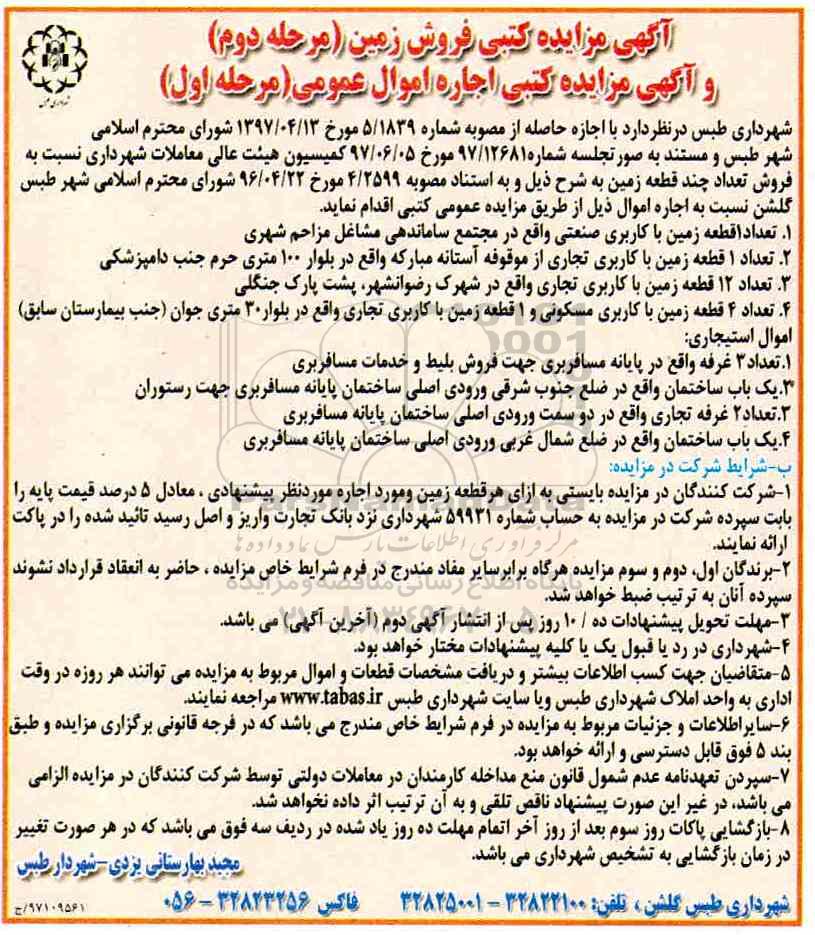 آگهی مزایده کتبی فروش زمین (مرحله دوم)
و آگهی مزایده کتبی اجاره اموال عمومی(مرحله اول)
شهرداری طبس
شهرداری طبس درنظردارد با اجازه حاصله از مصوبه شماره ۵/۱۸۳۹ مورخ ۱۳۹۷/۰۴/۱۳ شورای محترم اسلامی
شهر طبس و مستند به صورتجلسه شماره۹۷/۱۲۶۸۱ مورخ ۹۷/۰۶/۰۵ کمیسیون هیئت عالی معاملات شهرداری نسبت به
فروش تعداد چند قطعه زمین به شرح ذیل و به استناد مصوبه ۴/۲۵۹۹ مورخ ۹۶/۰۴/۲۲ شورای محترم اسلامی شهر طبس
گلشن نسبت به اجاره اموال ذیل از طریق مزایده عمومی کتبی اقدام نماید.
۱. تعداد۱قطعه زمین با کاربری صنعتی واقع در مجتمع ساماندهی مشاغل مزاحم شهری
۲. تعداد ۱ قطعه زمین با کاربری تجاری از موقوفه آستانه مبارکه واقع در بلوار ۱۰۰ متری حرم جنب دامپزشکی
۳. تعداد ۱۲ قطعه زمین با کاربری تجاری واقع در شهرک رضوانشهر، پشت پارک جنگلی
۴. تعداد ۴ قطعه زمین با کاربری مسکونی و ۱ قطعه زمین با کاربری تجاری واقع در بلوار۳۰ متری جوان (جنب بیمارستان سابق)
اموال استیجاری:
۱.تعداد۳ غرفه واقع در پایانه مسافربری جهت فروش بلیط و خدمات مسافربری
۳.یک باب ساختمان واقع در ضلع جنوب شرقی ورودی اصلی ساختمان پایانه مسافربری جهت رستوران
۳.تعداد۲ غرفه تجاری واقع در دو سمت ورودی اصلی ساختمان پایانه مسافربری
۴.یک باب ساختمان واقع در ضلع شمال غربی ورودی اصلی ساختمان پایانه مسافربری
ب-شرایط شرکت در مزایده:
۱-شرکت کنندگان در مزایده بایستی به ازای هرقطعه زمین ومورد اجاره موردنظر پیشنهادی ، معادل ۵ درصد قیمت پایه را
بابت سپرده شرکت در مزایده به حساب شماره ۵۹۹۳۱ شهرداری نزد بانک تجارت واریز و اصل رسید تائید شده را در پاکت
ارائه نمایند.
۲-برندگان اول، دوم و سوم مزایده هرگاه برابرسایر مفاد مندرج در فرم شرایط خاص مزایده ، حاضر به انعقاد قرارداد نشوند
سپرده آنان به ترتیب ضبط خواهد شد.
۳-مهلت تحویل پیشنهادات ده / ۱۰ روز پس از انتشار آگهی دوم (آخرین آگهی) می باشد.
۴-شهرداری در رد یا قبول یک یا کلیه پیشنهادات مختار خواهد بود.
۵-متقاضیان جهت کسب اطلاعات بیشتر و دریافت مشخصات قطعات و اموال مربوط به مزایده می توانند هر روزه در وقت
اداری به واحد املاک شهرداری طبس ویا سایت شهرداری طبس www.tabas.ir مراجعه نمایند.
۶-سایراطلاعات و جزئیات مربوط به مزایده در فرم شرایط خاص مندرج می باشد که در فرجه قانونی برگزاری مزایده و طبق
بند ۵ فوق قابل دسترسی و ارائه خواهد بود.
۷-سپردن تعهدنامه عدم شمول قانون منع مداخله کارمندان در معاملات دولتی توسط شرکت کنندگان در مزایده الزامی
می باشد، در غیر این صورت پیشنهاد ناقص تلقی و به آن ترتیب اثر داده نخواهد شد.
۸-بازگشایی پاکات روز سوم بعد از روز آخر اتمام مهلت ده روز یاد شده در ردیف سه فوق می باشد که در هر صورت تغییر
در زمان بازگشایی به تشخیص شهرداری می باشد.
مجید بهارستانی یزدی-شهردار طبس
شهرداری طبس گلشن ، تلفن: ۳۲۸۲۲۱۰۰ - ۳۲۸۲۵۰۰۱ فاکس ۳۲۸۲۳۲۵۶ - ۰۵۶
۹۷۱۰۹۵۶۱/ج
ParsNamadData
مرکز فرآوری اطلاعات پارس نماد داده ها
پایگاه اطلاع رسانی مناقصه ومزایده
۰۲۱-۸۸۳۴۹۶۷۰-۵